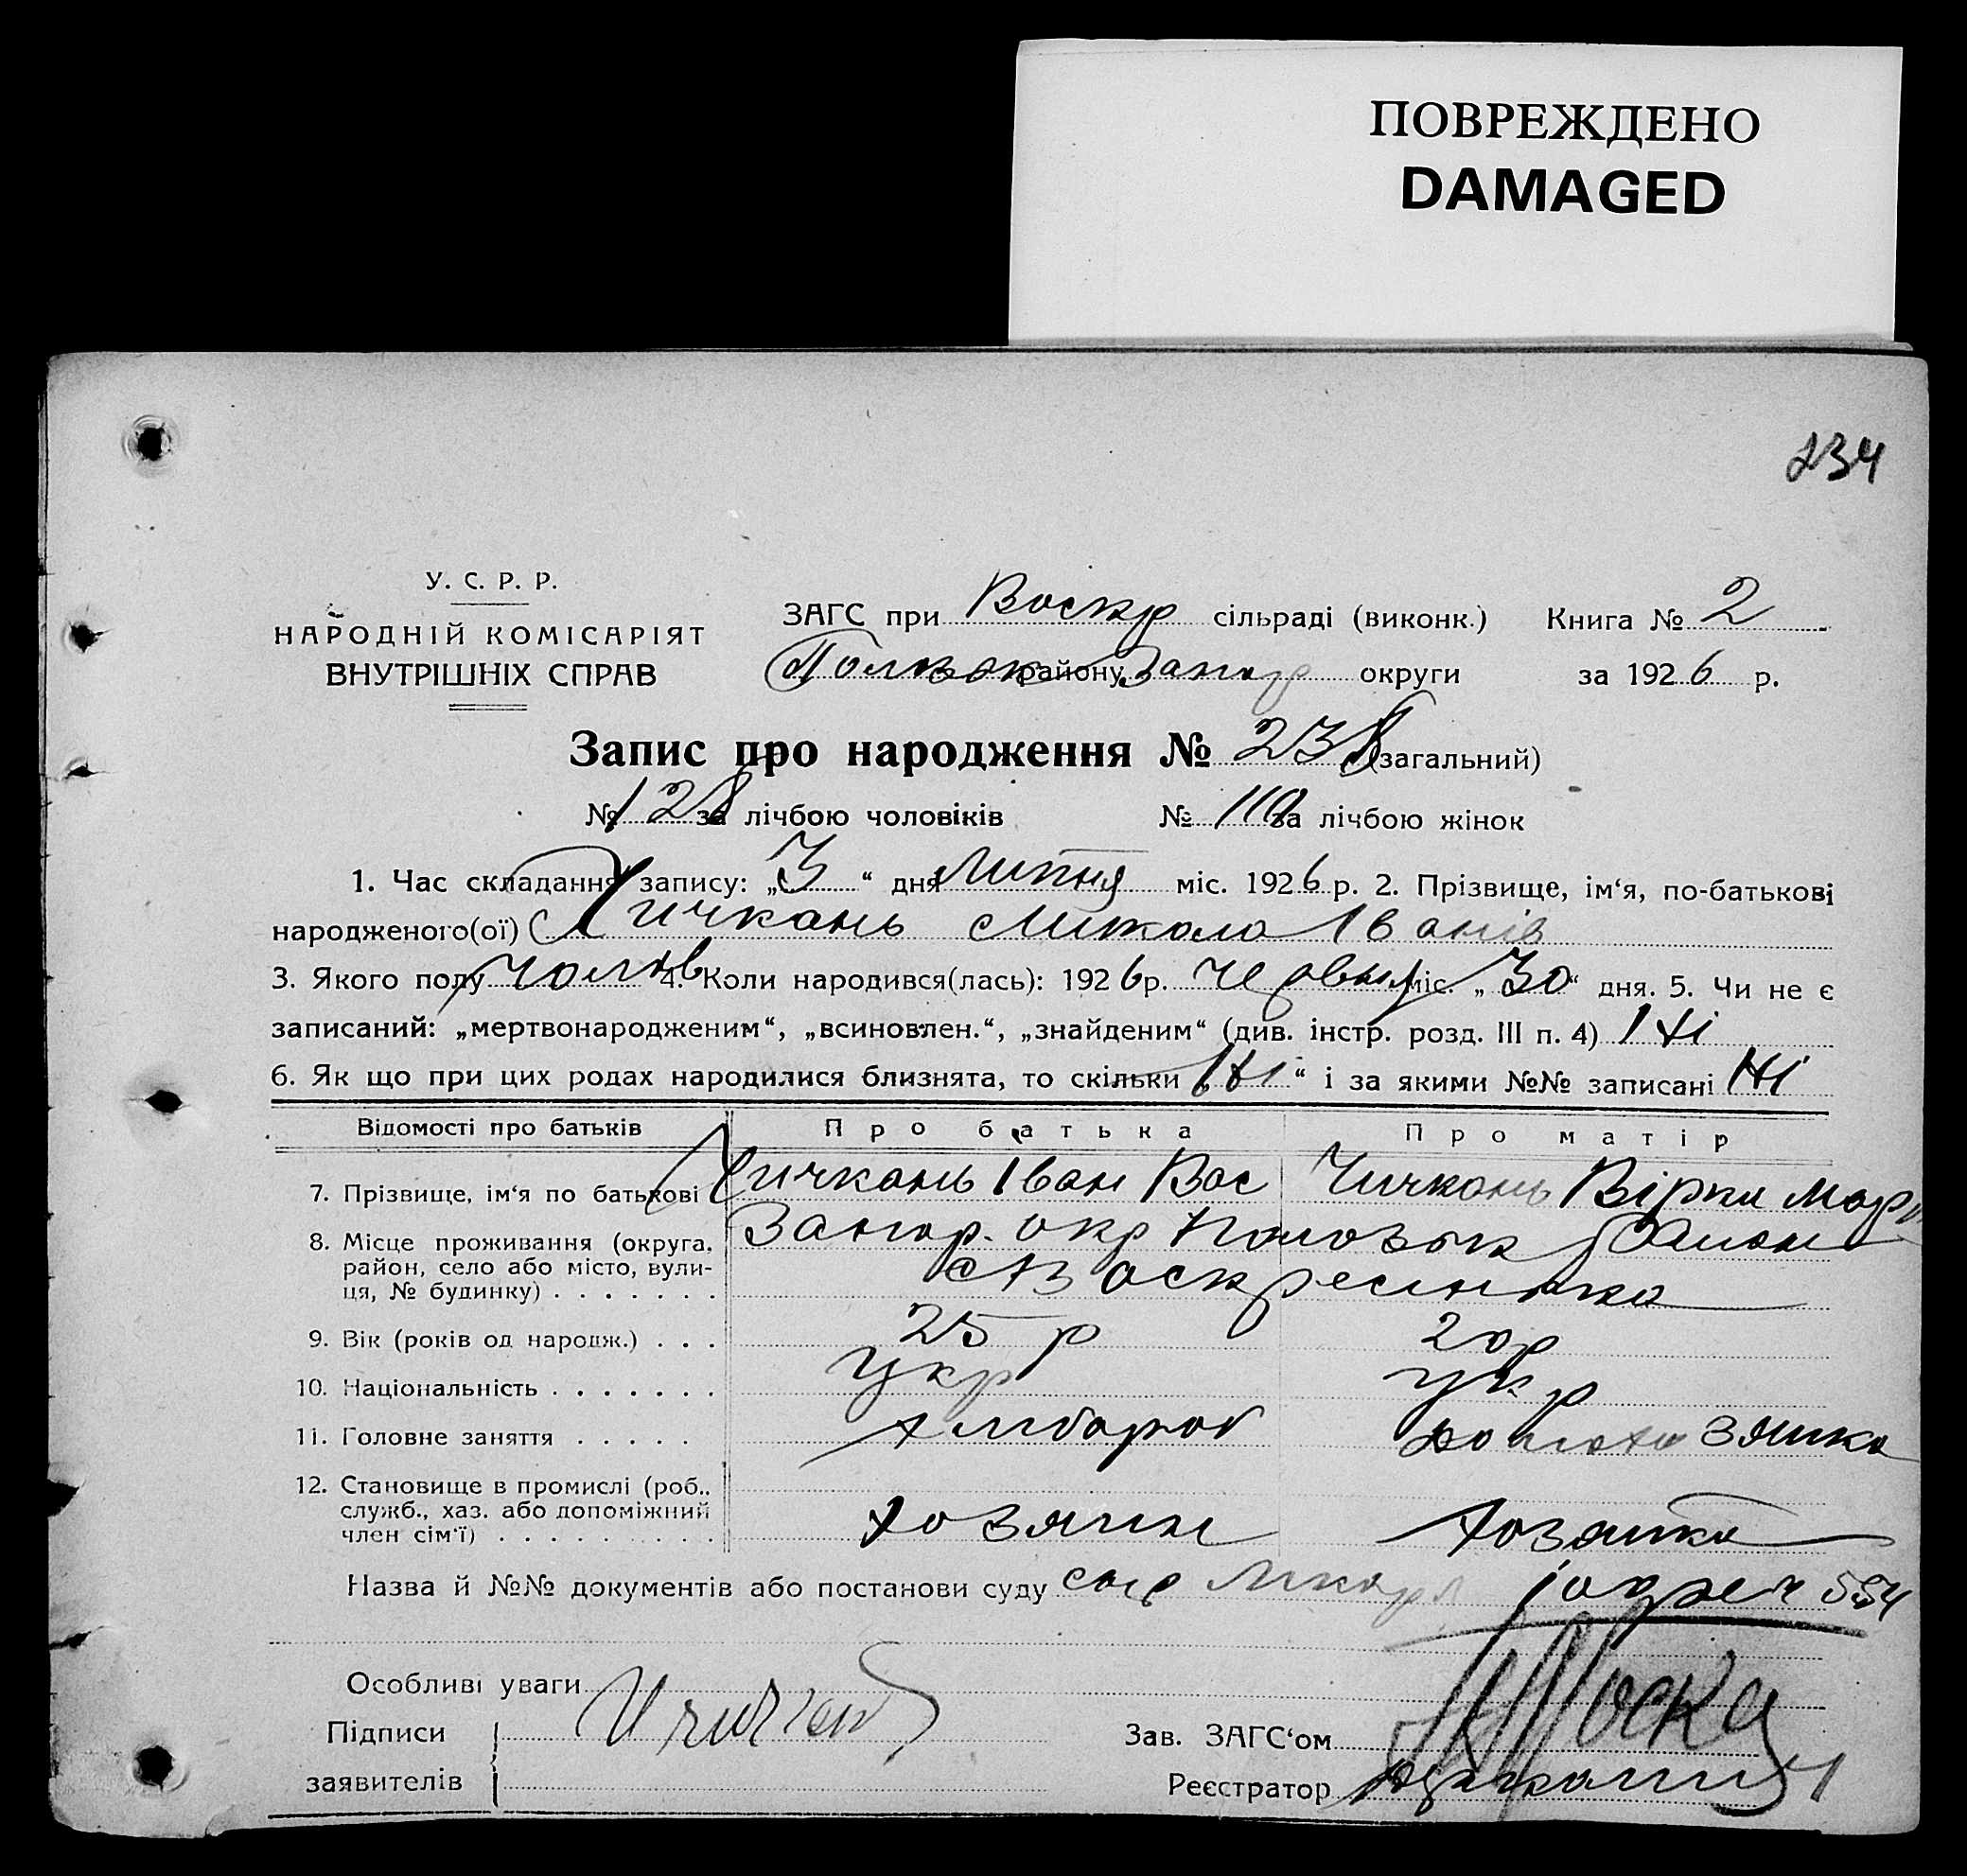 ПОВРЕЖДЕНО
DAMAGED
234
У. С. Р. Р.
НАРОДНІЙ КОМІСАРІЯТ
ВНУТРІШНІХ СПРАВ
ЗАГС при Воскр сільраді (виконк.) Книга № 2
району Запор округи за 1926 р.
Запис про народження № 238 (загальний)
№ 128 за лічбою чоловіків № 110 за лічбою жінок
1. Час складання запису: „3“ дня Липня міс. 1926 р. 2. Прізвище, ім‘я, по-батькові
народженого(ої) Чичкань Микола Іванів
3. Якого полу чолов 4. Коли народився(лась): 1926 р. Червня міс. „30“ дня. 5. Чи не є
записаний: „мертвонародженим“, „всиновлен.“, „знайденим“ (див. інстр. розд. III п. 4) Ні
6. Як що при цих родах народилися близнята, то скільки „Ні“ і за якими №№ записані Ні
Відомості про батьків Про батька Про матір
7. Прізвище, ім‘я по батькові Чичкань Іван Вас Чичкань Вірка Мар
8. Місце проживання (округа, район, село або місто, вулиця, № будинку) . . . . . . . Запор. окр Пологовськ район
с Воскресенка
9. Вік (років од народж.) . . . 25 р 20 р
10. Національність . . . . . . . Укр Укр
11. Головне заняття . . . . . Хлібороб
12. Становище в промислі (роб., служб., хаз. або допоміжний член сім‘ї) . . . . . . . . . Хозяин Хозяйка
Назва й №№ документів або постанови суду 554
Особливі уваги
Підписи
заявителів
Зав. ЗАГС‘ом
Реєстратор